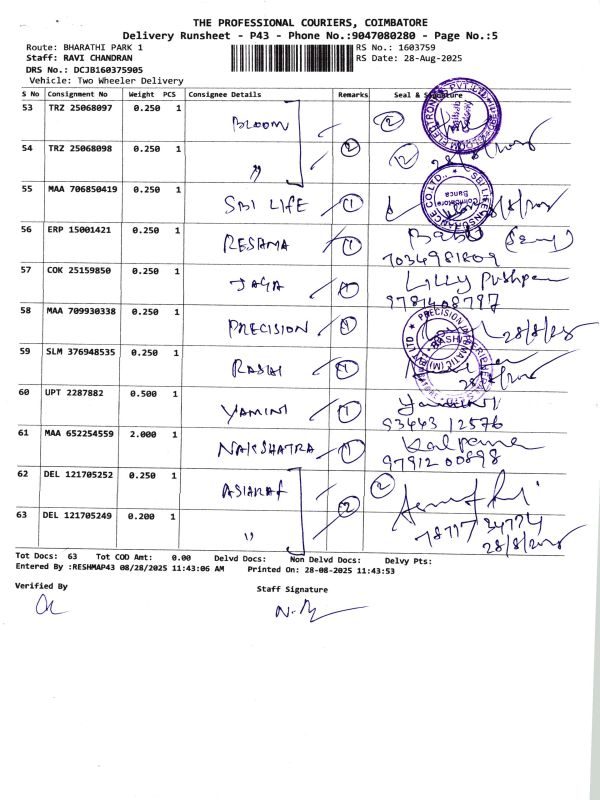 THE PROFESSIONAL COURIERS, COIMBATORE
Delivery Runsheet - P43 - Phone No.:9047080280 - Page No.:5
Route: BHARATHI PARK 1 RS No.: 1603759
Staff: RAVI CHANDRAN RS Date: 28-Aug-2025
DRS No.: DCJB160375905
Vehicle: Two Wheeler Delivery
S No Consignment No Weight PCS Consignee Details Remarks Seal & Signature
53 TRZ 25068097 0.250 1 BLOOM 2
54 TRZ 25068098 0.250 1 " 2 12
28/8/2025
55 MAA 706850419 0.250 1 SBI LIFE 1
SBI LIFE INSURANCE CO.LTD. Coimbatore Banca
56 ERP 15001421 0.250 1 RESHMA 1 Babu
7034981809
57 COK 25159850 0.250 1 JAYA 1 Lilly Pushpam
9781408797
58 MAA 709930338 0.250 1 PRECISION 1 28/8/25
59 SLM 376948535 0.250 1 RASHI 1
28/8/2025
60 UPT 2287882 0.500 1 YAMINI 1 Yamini
93443 12576
61 MAA 652254559 2.000 1 NAKSHATRA 1 Kalpana
97912 00898
62 DEL 121705252 0.250 1 ASHARAF 2 2
63 DEL 121705249 0.200 1 " 78717 34774
28/8/2025
Tot Docs: 63 Tot COD Amt: 0.00 Delvd Docs: Non Delvd Docs: Delvy Pts:
Entered By :RESHMAP43 08/28/2025 11:43:06 AM Printed On: 28-08-2025 11:43:53
Verified By Staff Signature